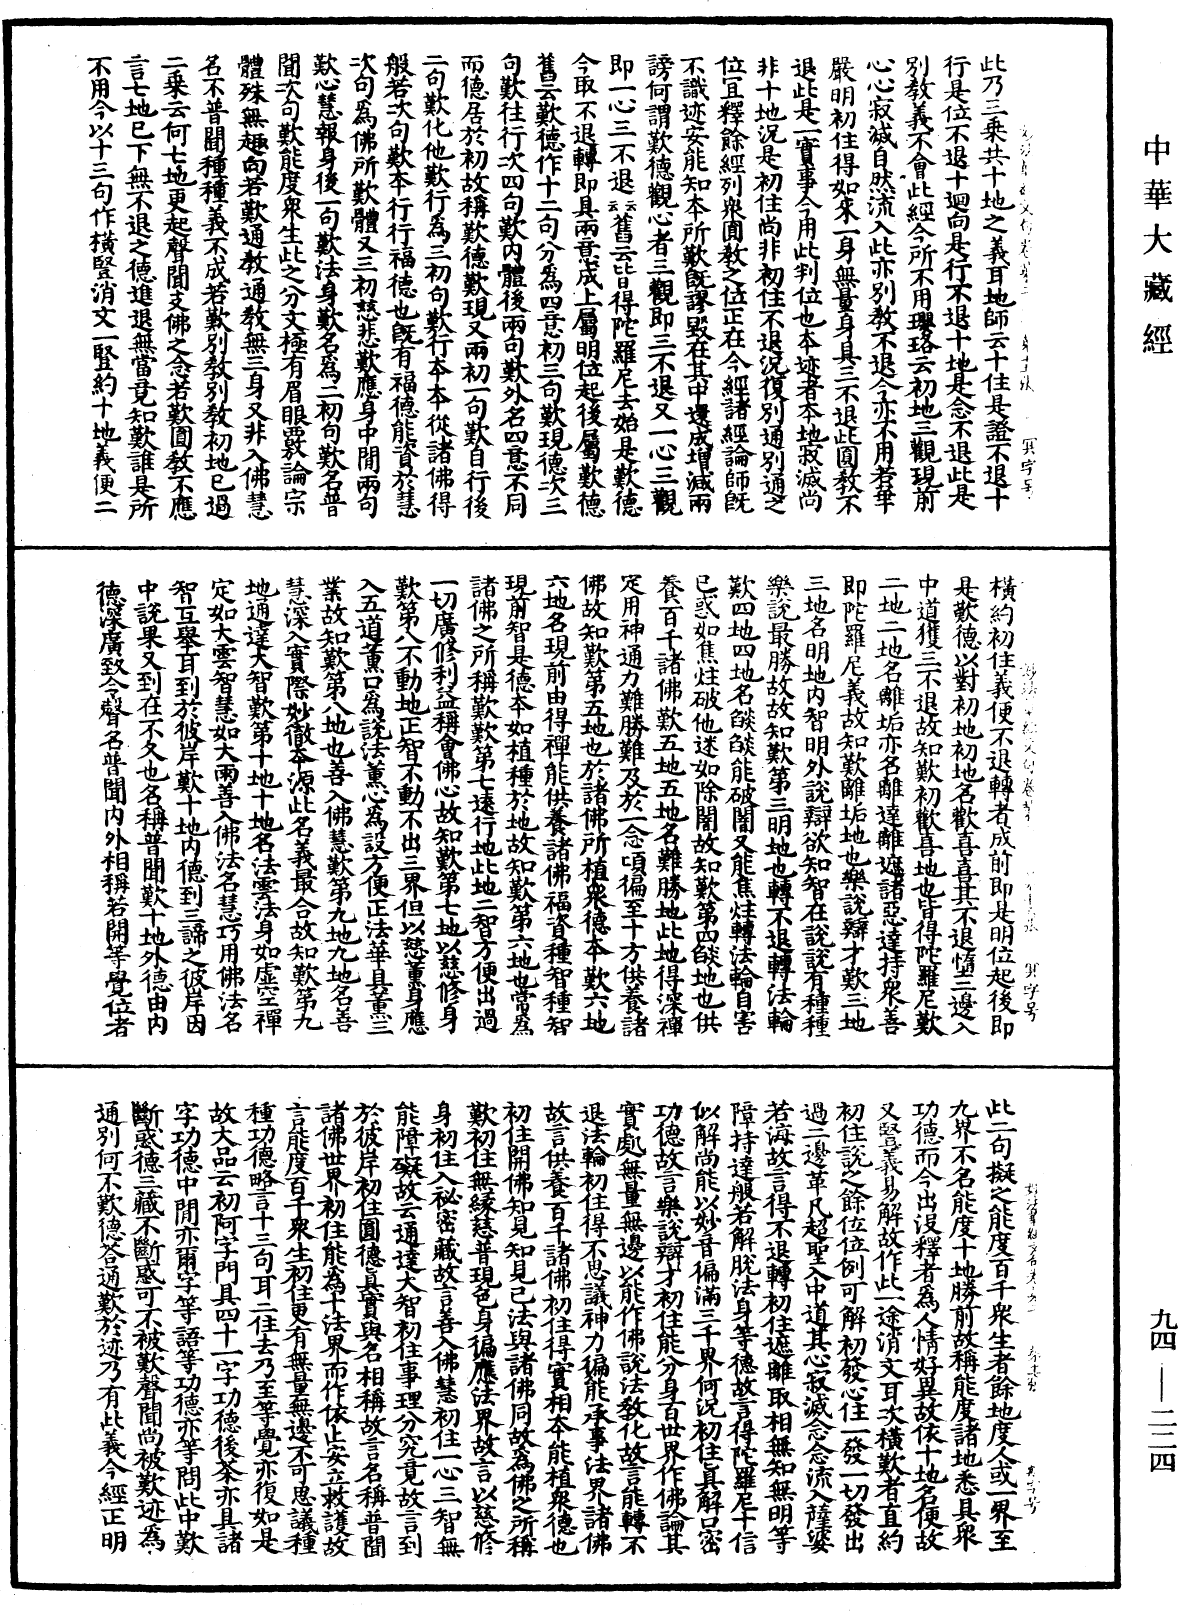 中華大藏經
此乃三乘共十地之義耳地師云十住是證不退十
行是位不退十迴向是行不退十地是念不退此是
別教義不會此經今所不用瓔珞云初地三觀現前
心心寂滅自然流入此亦別教不退今亦不用若華
嚴明初住得如來一身無量身具三不退此圓教不
退此是一實事今用此判位也本迹者本地寂滅尚
非十地況是初住尚非初住不退況復別通別通之
位冝釋餘經列衆圓教之位正在今經諸經論師旣
不識迹安能知本所歎旣謬毀在其中還成增減兩
謗何謂歎德觀心者三觀即三不退又一心三觀
即一心三不退云云舊云皆得陀羅尼去始是歎德
今取不退轉即具兩意成上屬明位起後屬歎德
舊云歎德作十二句分爲四意初三句歎現德次三
句歎往行次四句歎內體後兩句歎外名四意不同
而德居於初故稱歎德歎現又兩初一句歎自行後
二句歎化他歎行爲三初句歎行本本從諸佛得
般若次句歎本行行福德也旣有福德能資於慧
次句爲佛所歎歎體又三初慈悲歎應身中閒兩句
歎心慧報身後一句歎法身歎名爲二初句歎名普
聞次句歎能度衆生此之分文極有眉眼覈論宗
體殊無趣向若歎通教通教無三身又非入佛慧
名不普聞種種義不成若歎別教別教初地已過
二乘云何七地更起聲聞支佛之念若歎圓教不應
言七地已下無不退之德進退無當竟知歎誰是所
不用今以十三句作橫豎消文一豎約十地義便二
橫約初住義便不退轉者成前即是明位起後即
是歎德以對初地初地名歡喜喜其不退墮二邊入
中道獲三不退故知歎初歡喜地也皆得陀羅尼歎
二地二地名離垢亦名離達離遮諸惡達持衆善
即陀羅尼義故知歎離垢地也樂說辯才歎三地
三地名明地內智明外說辯欲知智在說說有種種
樂說最勝故故知歎第三明地也轉不退轉法輪
歎四地四地名燄燄能破闇又能焦炷轉法輪自害
已惑如焦炷破他迷如除闇故知歎第四燄地也供
養百千諸佛歎五地五地名難勝地此地得深禪
定用神通力難勝難及於一念頃徧至十方供養諸
佛故知歎第五地也於諸佛所植衆德本歎六地
六地名現前由得禪能供養諸佛福資種智種智
現前智是德本如植種於地故知歎第六地也常爲
諸佛之所稱歎歎第七遠行地此地二智方便出過
一切廣修利益稱會佛心故知歎第七地以慈修身
歎第八不動地正智不動不出三界但以慈薰身應
入五道薰口爲說法薰心爲設方便正法華具薰三
業故知歎第八地也善入佛慧歎第九地九地名善
慧深入實際妙徹本源此名義最合故知歎第九
地通達大智歎第十地十地名法雲法身如虛空禪
定如大雲智慧如大雨善入佛法名慧巧用佛法名
智互舉耳到於彼岸歎十地內德到三諦之彼岸因
中說果又到在不久也名稱普聞歎十地外德由內
德深廣致令聲名普聞內外相稱若開等覺位者
此二句擬之能度百千衆生者餘地度人或一界至
九界不名能度十地勝前故稱能度諸地悉具衆
功德而今出沒釋者爲人情好異故依十地名便故
又豎義易解故作此一途消文耳次橫歎者直約
初住說之餘位位例可解初發心住一發一切發出
過二邊革凡超聖入中道其心寂滅念念流入薩婆
若海故言得不退轉初住遮離取相無知無明等
障持達般若解脫法身等德故言得陀羅尼十信
似解尚能以妙音徧滿三千界何況初住眞解口密
功德故言樂說辯才初住能分身百世界作佛論其
實處無量無邊以能作佛說法教化故言能轉不
退法輪初住得不思議神力徧能承事法界諸佛
故言供養百千諸佛初住得實相本能植衆德也
初住開佛知見知見己法與諸佛同故爲佛之所稱
歎初住無緣慈普現色身徧應法界故言以慈修
身初住入祕密藏故言善入佛慧初住一心三智無
能障礙故云通達大智初住事理分究竟故言到
於彼岸初住圓德眞實與名相稱故言名稱普聞
諸佛世界初住能爲十法界而作依止安立救護故
言能度百千衆生初住更有無量無邊不可思議種
種功德略言十三句耳二住去乃至等覺亦復如是
故大品云初阿字門具四十一字功德後茶亦具諸
字功德中閒亦爾字等語等功德亦等問此中歎
斷惑德三藏不斷惑可不被歎聲聞尚被歎迹爲
通別何不歎德答通歎於迹乃有此義今經正明
九四—二二四